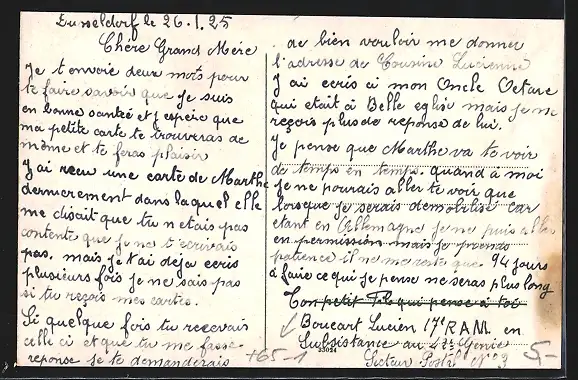 Dusseldorf le 26.1.25
Chère Grand Mère
Je t envoie deux mots pour
te faire savoir que je suis
en bonne santée et j espère que
ma petite carte te trouveras de
même et te feras plaisir
J ai reçu une carte de Marthe
dernierement dans laquel elle
me disait que tu n etais pas
contente que je ne t ecrivais
pas, mais je t ai deja ecris
plusieurs fois je ne sais pas
si tu reçois mes cartes.
Si quelque fois tu recevais
celle ci et que tu me fasse
reponse je te demanderais
de bien vouloir me donner
l'adresse de Cousine Lucienne
J ai ecris a mon Oncle Octave
qui etait à Belle eglise mais je ne
reçois plus de reponse de lui.
Je pense que Marthe va te voir
de temps en temps. quand à moi
je ne pourais aller te voir que
lorsque je serais demobilisé car
etant en Allemagne je ne puis aller
en permission mais je prends
patience il ne me reste que 94 jours
à faire ce qui je pense ne seras plus long
Ton petit Fils qui pense à toi
Boucart Lucien 17e R.A.M. en
Subsistance au Genie
Secteur Postal N° 3
23024
+65-1
5,-